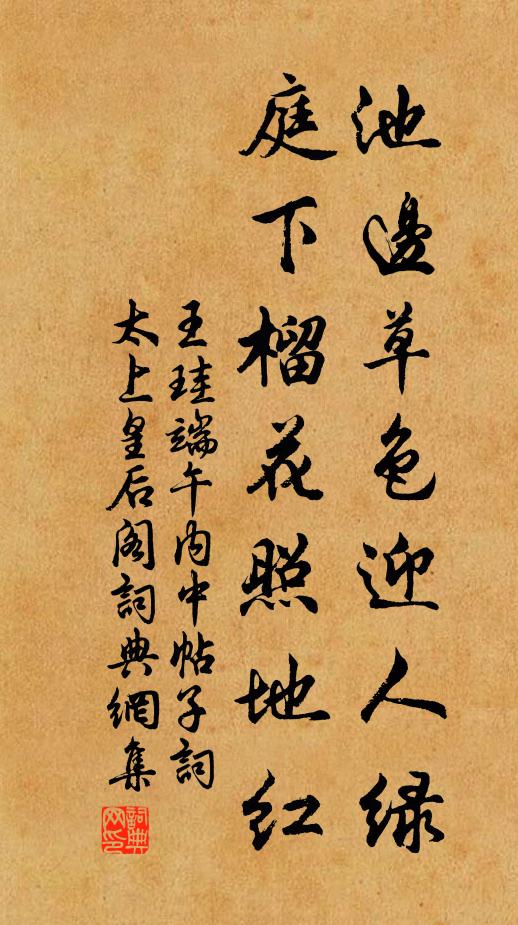 池邊草色迎人緑
庭下榴花照地紅
王珪端午内中帖子詞
太上皇后阁詞典網集
詞典网印